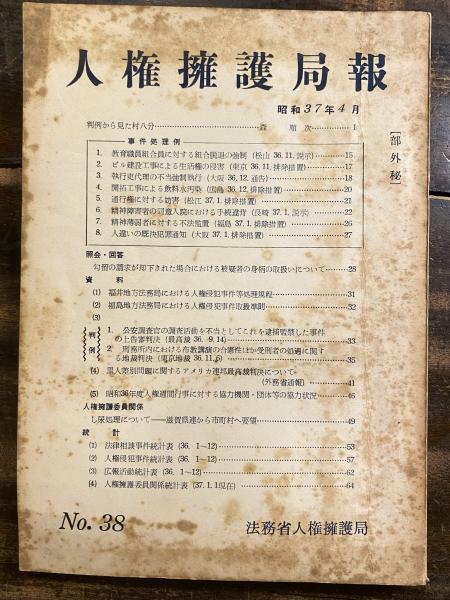 人権擁護局報
昭和37年4月
〔部外秘〕
判例から見た村八分……森 順次…1
事件処理例
1. 教育職員組合員に対する組合脱退の強制（松山 36.11.説示）…15
2. ビル建設工事による生活権の侵害（東京 36.11.排除措置）…17
3. 執行吏代理の不当強制執行（大阪 36.12.通告）…18
4. 開拓工事による飲料水汚染（広島 36.12.排除措置）…20
5. 通行権に対する妨害（松江 37.1.排除措置）…21
6. 精神障害者の同意入院における手続違背（長崎 37.1.説示）…22
7. 精神薄弱者に対する不法監置（福島 37.1.排除措置）…26
8. 人違いの既決犯罪通知（大阪 37.1.排除措置）…27
照会・回答
勾留の請求が却下された場合における被疑者の身柄の取扱いについて…28
資料
(1) 福井地方法務局における人権侵犯事件等処理規程…31
(2) 福島地方法務局における人権侵犯事件取扱準則…32
(3)
判例
1. 公安調査官の調査活動を不当としてこれを逮捕監禁した事件
の上告審判決（最高裁 36.9.14）…33
2. 刑務所内における布教講演の合憲性ほか受刑者の処遇に関す
る地裁判決（東京地裁 36.11.6）…35
(4) 黒人差別問題に関するアメリカ連邦最高裁判決について
（外務省通報）…41
(5) 昭和36年度人権週間行事に対する協力機関・団体等の協力状況…46
人権擁護委員関係
し尿処理について――滋賀県連から市町村へ要望…49
統計
(1) 法律相談事件統計表（36.1～12）…53
(2) 人権侵犯事件統計表（36.1～12）…57
(3) 広報活動統計表（36.1～12）…62
(4) 人権擁護委員関係統計表（37.1.1現在）…64
No. 38
法務省人権擁護局